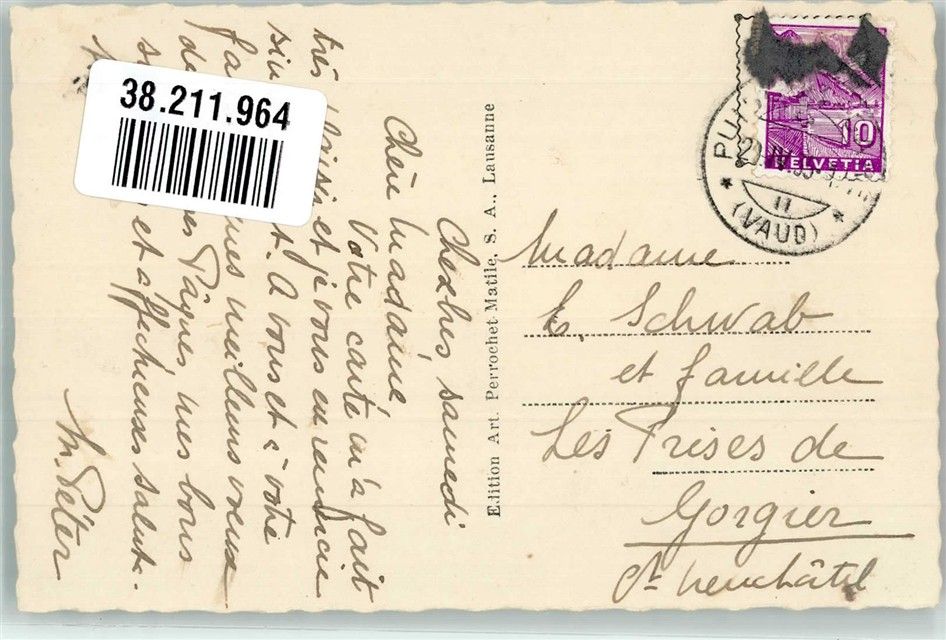 38.211.964
Chexbres samedi
Chère Madame
Votre carte m'a fait
très plaisir et je vous en remercie
A vous et à votre
meilleurs voeux
de Pâques mes bons
et affectueuses saluts.
M. Péter
Edition Art. Perrochet-Matile, S. A., Lausanne
10
HELVETIA
PU
(VAUD)
Madame
E. Schwab
et famille
Les Prises de
Gorgier
Ct Neuchâtel